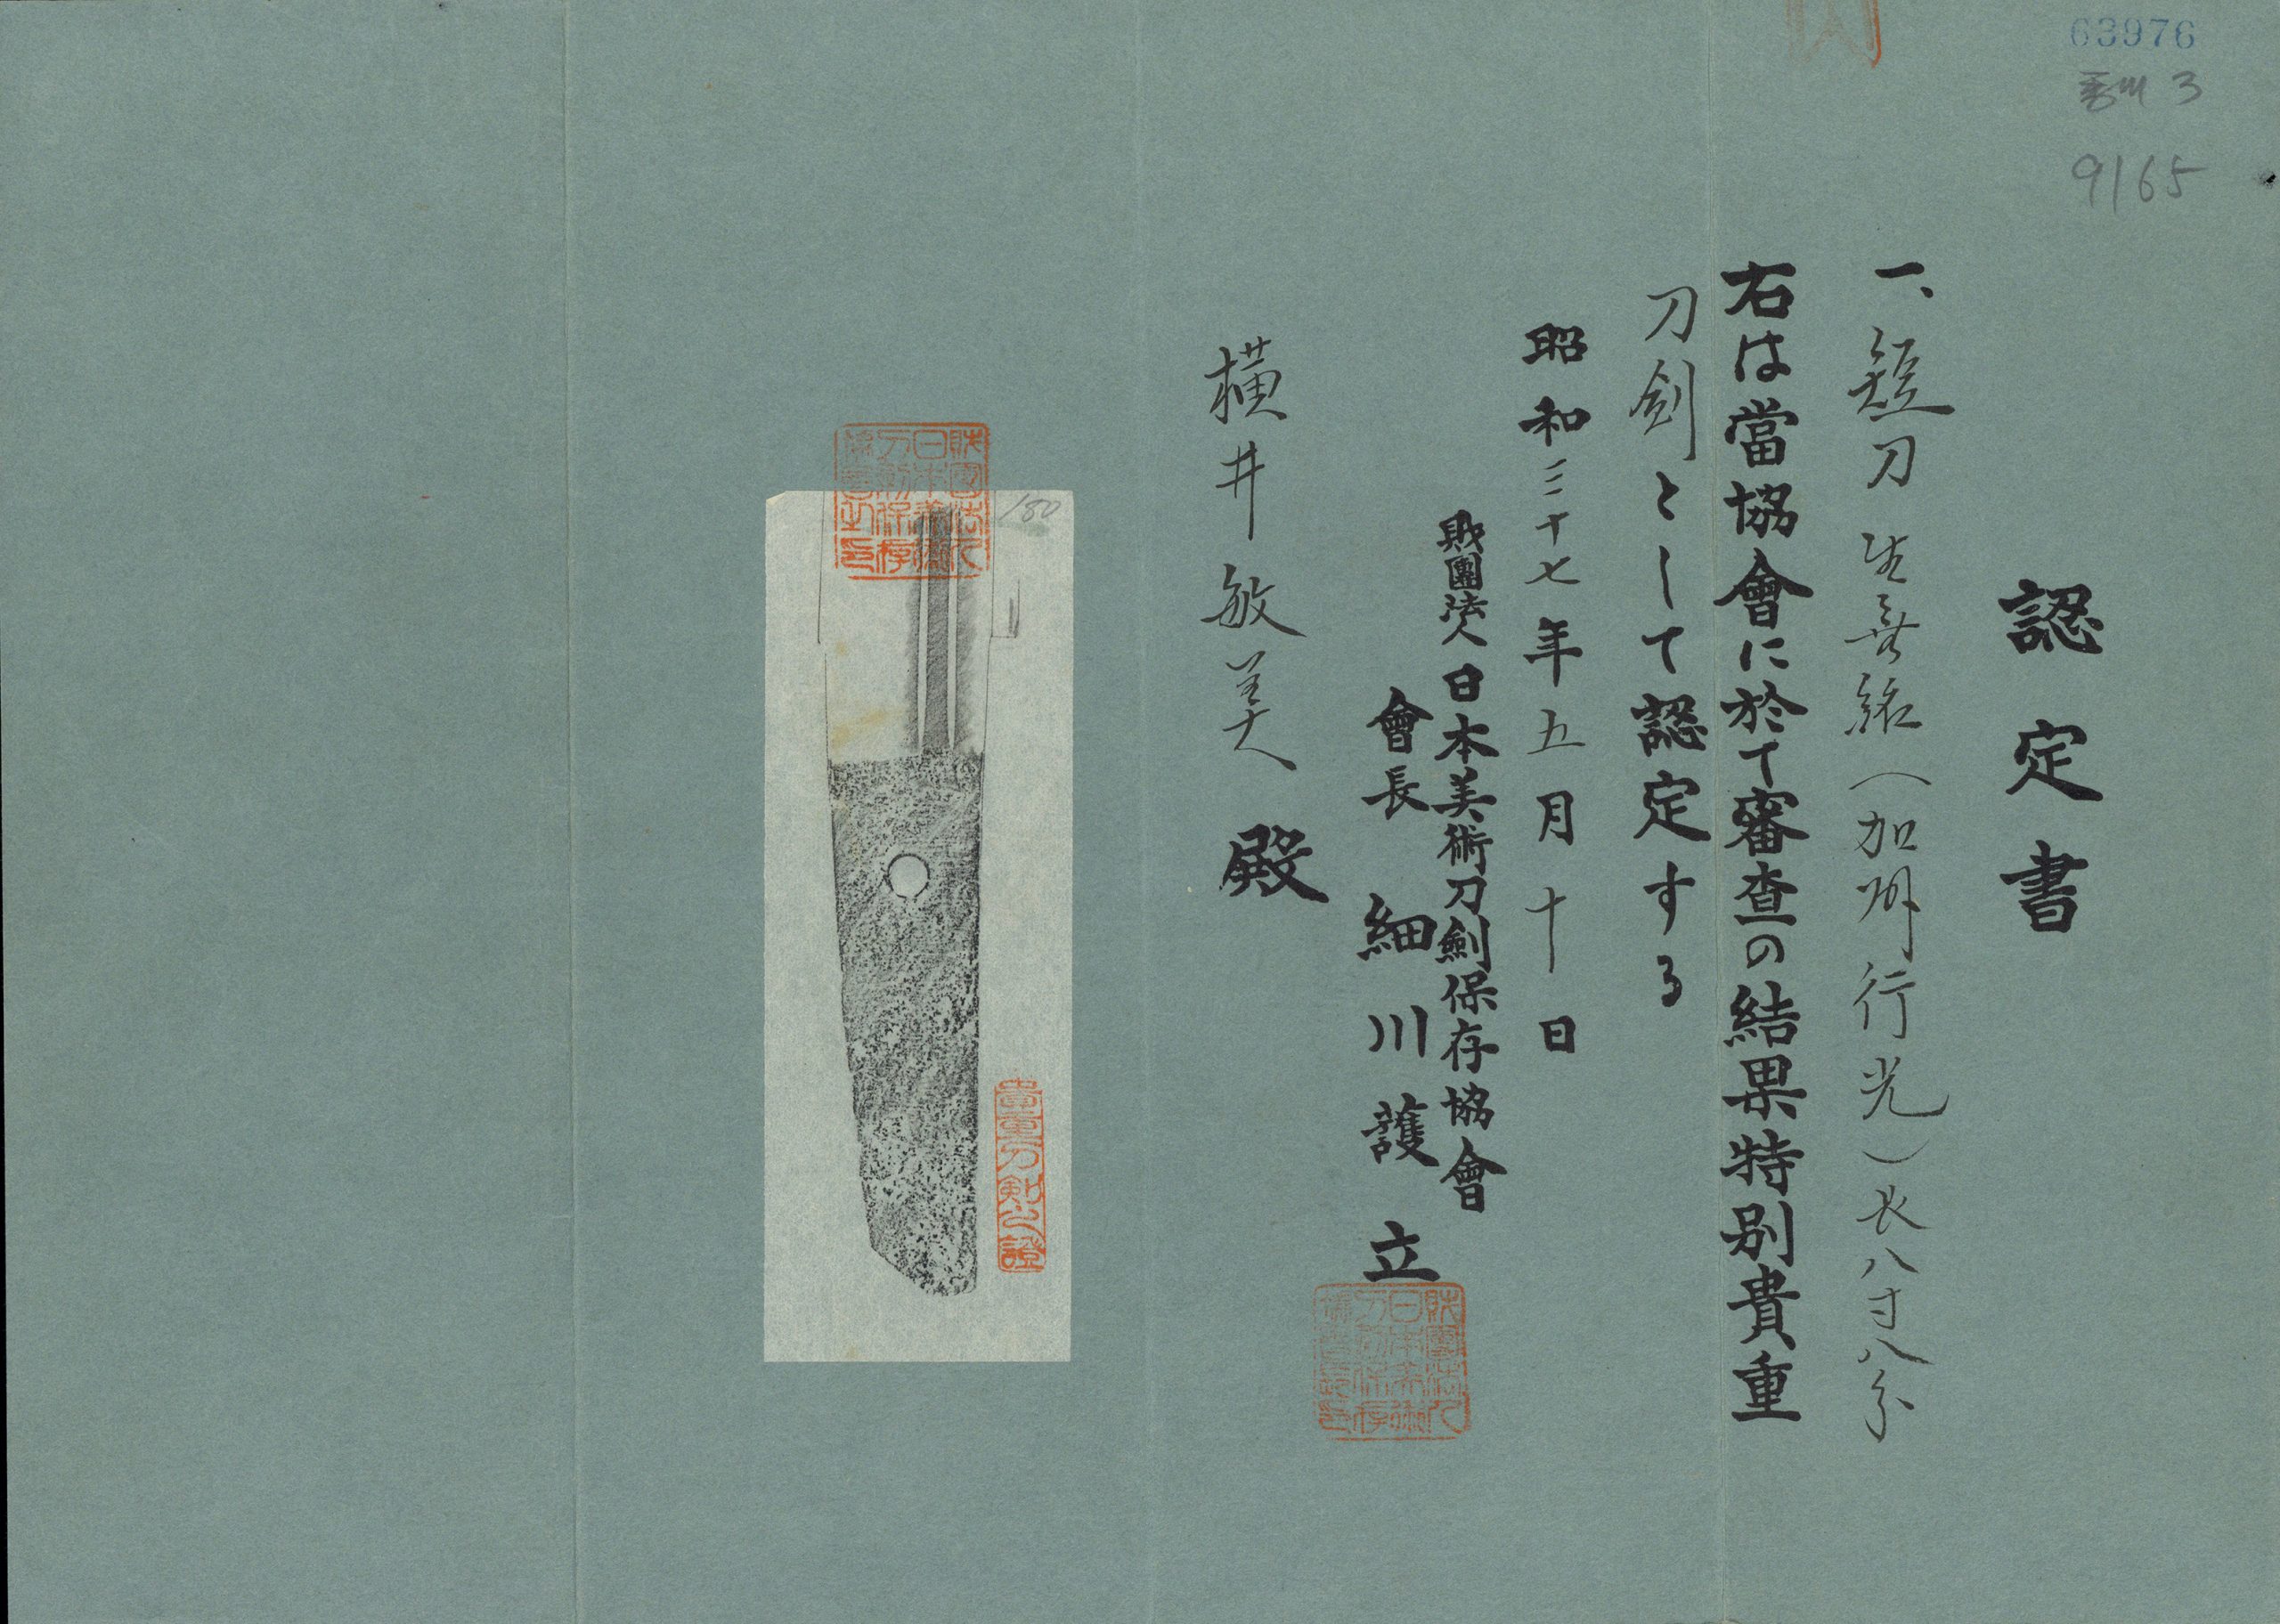 63976
3
9165
認定書
一、短刀 生無銘(加州行光)長八寸八分
右は當協會に於て審査の結果特別貴重
刀剣として認定する
昭和三十七年五月十日
財團法人 日本美術刀剣保存協會
會長 細川護立
横井敏美殿
財團法人日本美術刀剣保存協會長之印
180
財團法人日本美術刀剣保存協會之印
貴重刀剣之證